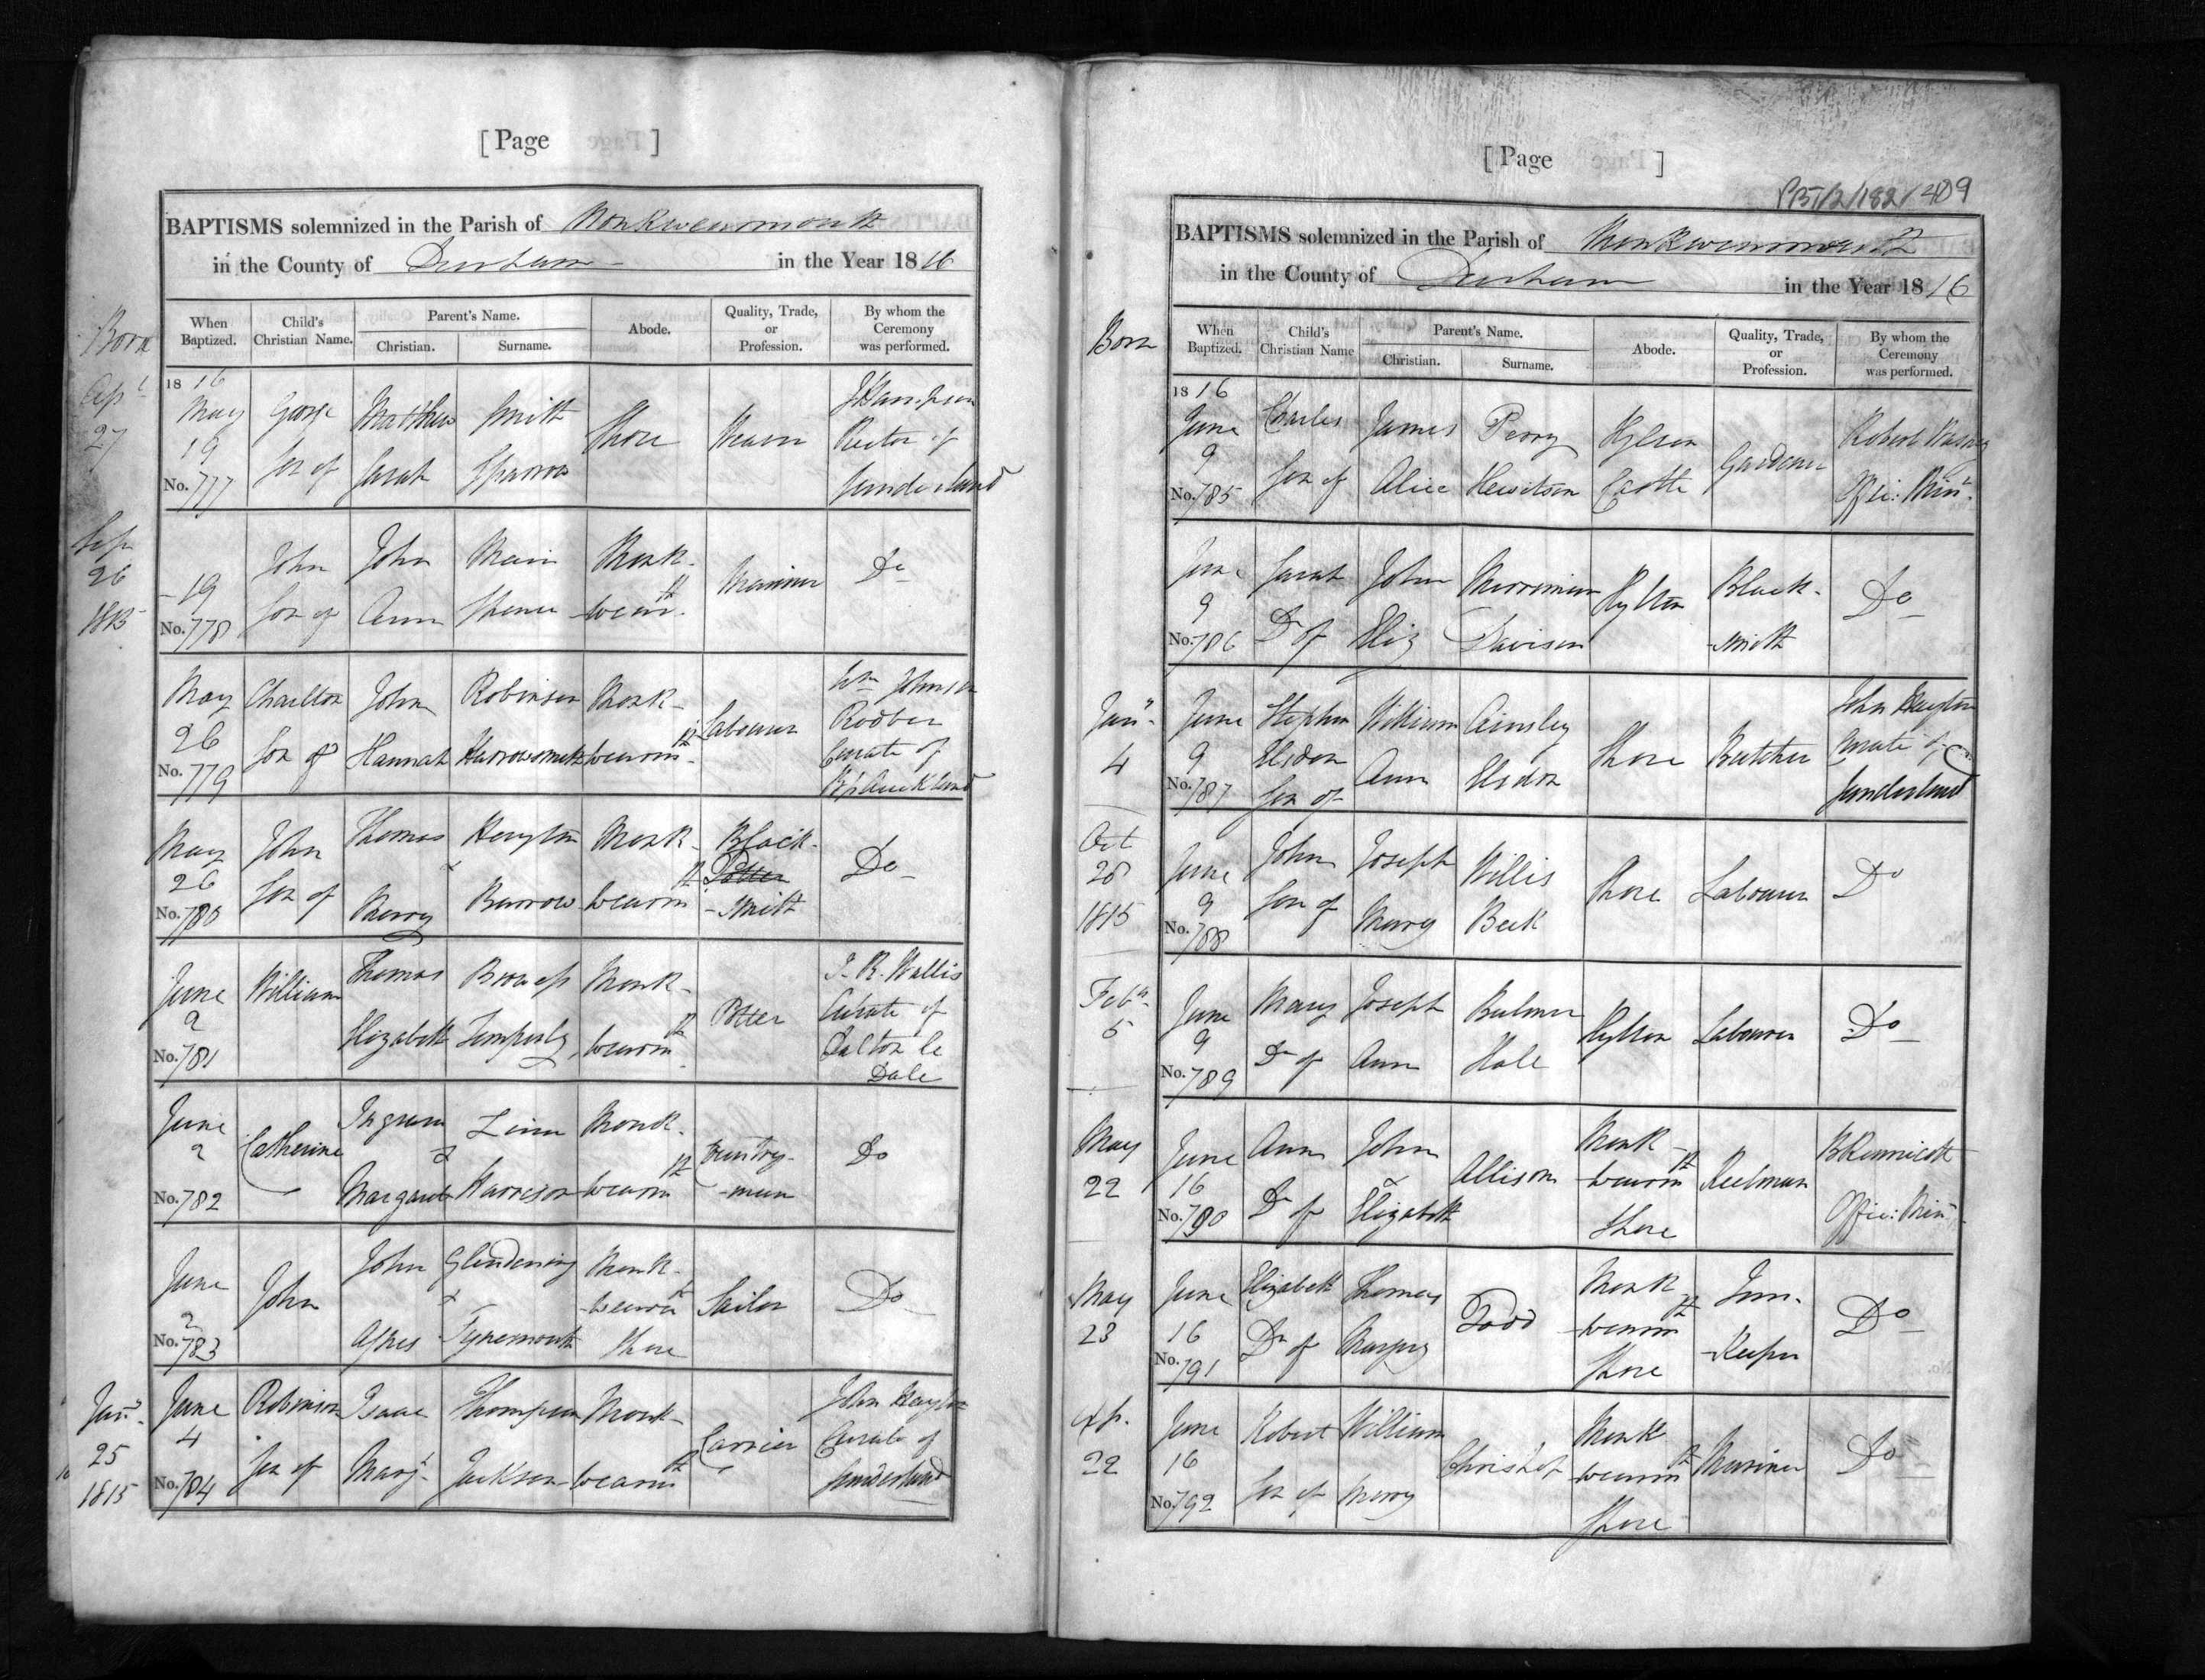 [ Page ]
BAPTISMS solemnized in the Parish of Monkwearmouth
in the County of Durham in the Year 1816
Born
When Baptized.
Child's Christian Name.
Parent's Name.
Christian.
Surname.
Abode.
Quality, Trade, or Profession.
By whom the Ceremony was performed.
Apl 27
1816 May 19 No. 777
George Son of
Matthew Sarah
Smith Sparrow
Shore
Weaver
Rector of Sunderland
Sep 26 1815
19 No. 778
John Son of
John Ann
Main Spence
Monk-wearth
Mariner
Do
May 26 No. 779
Charlton Son of
John Hannah
Robinson
Monk-wearmth
Labourer
Wm Johnson Curate of Bp Auckland
May 26 No. 780
John Son of
Thomas & Mary
Heryton Burrow
Monk-wearmth
Black-Potter-smith
Do
June 2 No. 781
William
Thomas Elizabeth
Temperly
Monk-wearmth
Potter
J. R. Wallis Curate of Dalton le Dale
June 2 No. 782
Catherine
Ingram & Margaret
Linn Harrison
Monk-wearmth
Country-man
Do
June 2 No. 783
John
John & Agnes
Glendening Tynemouth
Monk-wearmth Shore
Sailor
Do
Jany 25 1815
June 4 No. 784
Robinson Son of
Isaac Mary
Thompson Jackson
Monk-wearmth
Carrier
John Hayton Curate of Sunderland
[ Page ]
BAPTISMS solemnized in the Parish of Monkwearmouth
in the County of Durham in the Year 1816
Born
When Baptized.
Child's Christian Name
Parent's Name.
Christian.
Surname.
Abode.
Quality, Trade, or Profession.
By whom the Ceremony was performed.
1816 June 9 No. 785
Charles Son of
James Alice
Perry Hewitson
Hylton Castle
Gardener
Robert Offi: Minr.
June 9 No. 786
Sarah Dr of
John Eliz
Merriman Davison
Hylton
Black-smith
Do
Jany 4
June 9 No. 787
Stephen Elsdon Son of
William Ann
Ainsley Elsdon
Shore
Butcher
John Hayton Curate of Sunderland
Oct 28 1815
June 9 No. 788
John Son of
Joseph Mary
Willis Beck
Shore
Labourer
Do
Feby 5
June 9 No. 789
Mary Dr of
Joseph Ann
Bulmer Hall
Hylton
Labourer
Do
May 22
June 16 No. 790
Ann Dr of
John & Elizabeth
Allison
Monk-wearmth Shore
Keelman
B Kennicott Offi: Minr
May 23
June 16 No. 791
Elizabeth Dr of
Thomas Margery
Todd
Monk-wearmth Shore
Inn-Keeper
Do
Ap. 22
June 16 No. 792
Robert Son of
William Mary
Monk-wearmth Shore
Mariner
Do